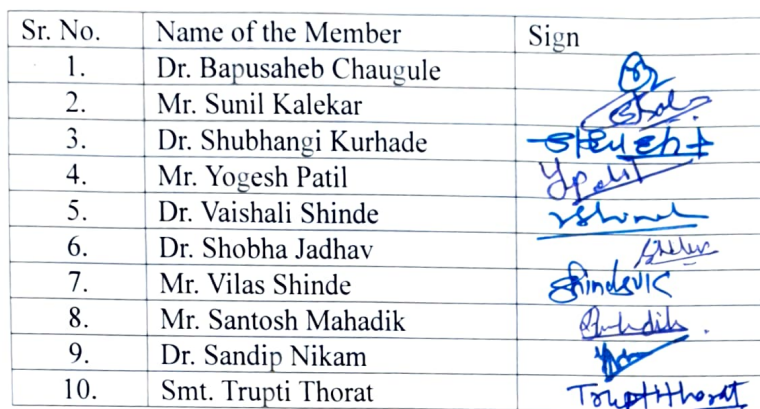 Sr. No. Name of the Member Sign
1. Dr. Bapusaheb Chaugule
2. Mr. Sunil Kalekar
3. Dr. Shubhangi Kurhade
4. Mr. Yogesh Patil Ypatil
5. Dr. Vaishali Shinde
6. Dr. Shobha Jadhav
7. Mr. Vilas Shinde
8. Mr. Santosh Mahadik
9. Dr. Sandip Nikam
10. Smt. Trupti Thorat